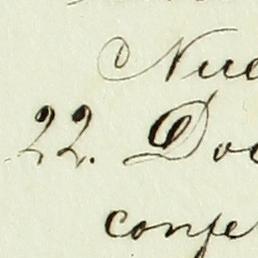 Nue
22. Doc
confe